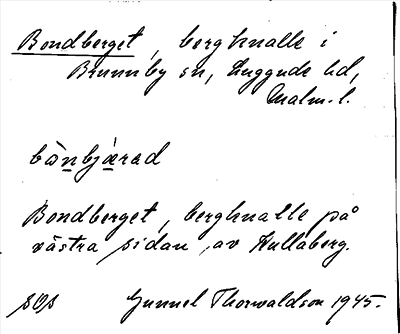 Bondberget, bergknalle i
Brunnby sn, Luggude hd,
Malm. l.
bànbjǽrad
Bondberget, bergknalle på
västra sidan av Kullaberg.
Gunnel Thorwaldson 1945.